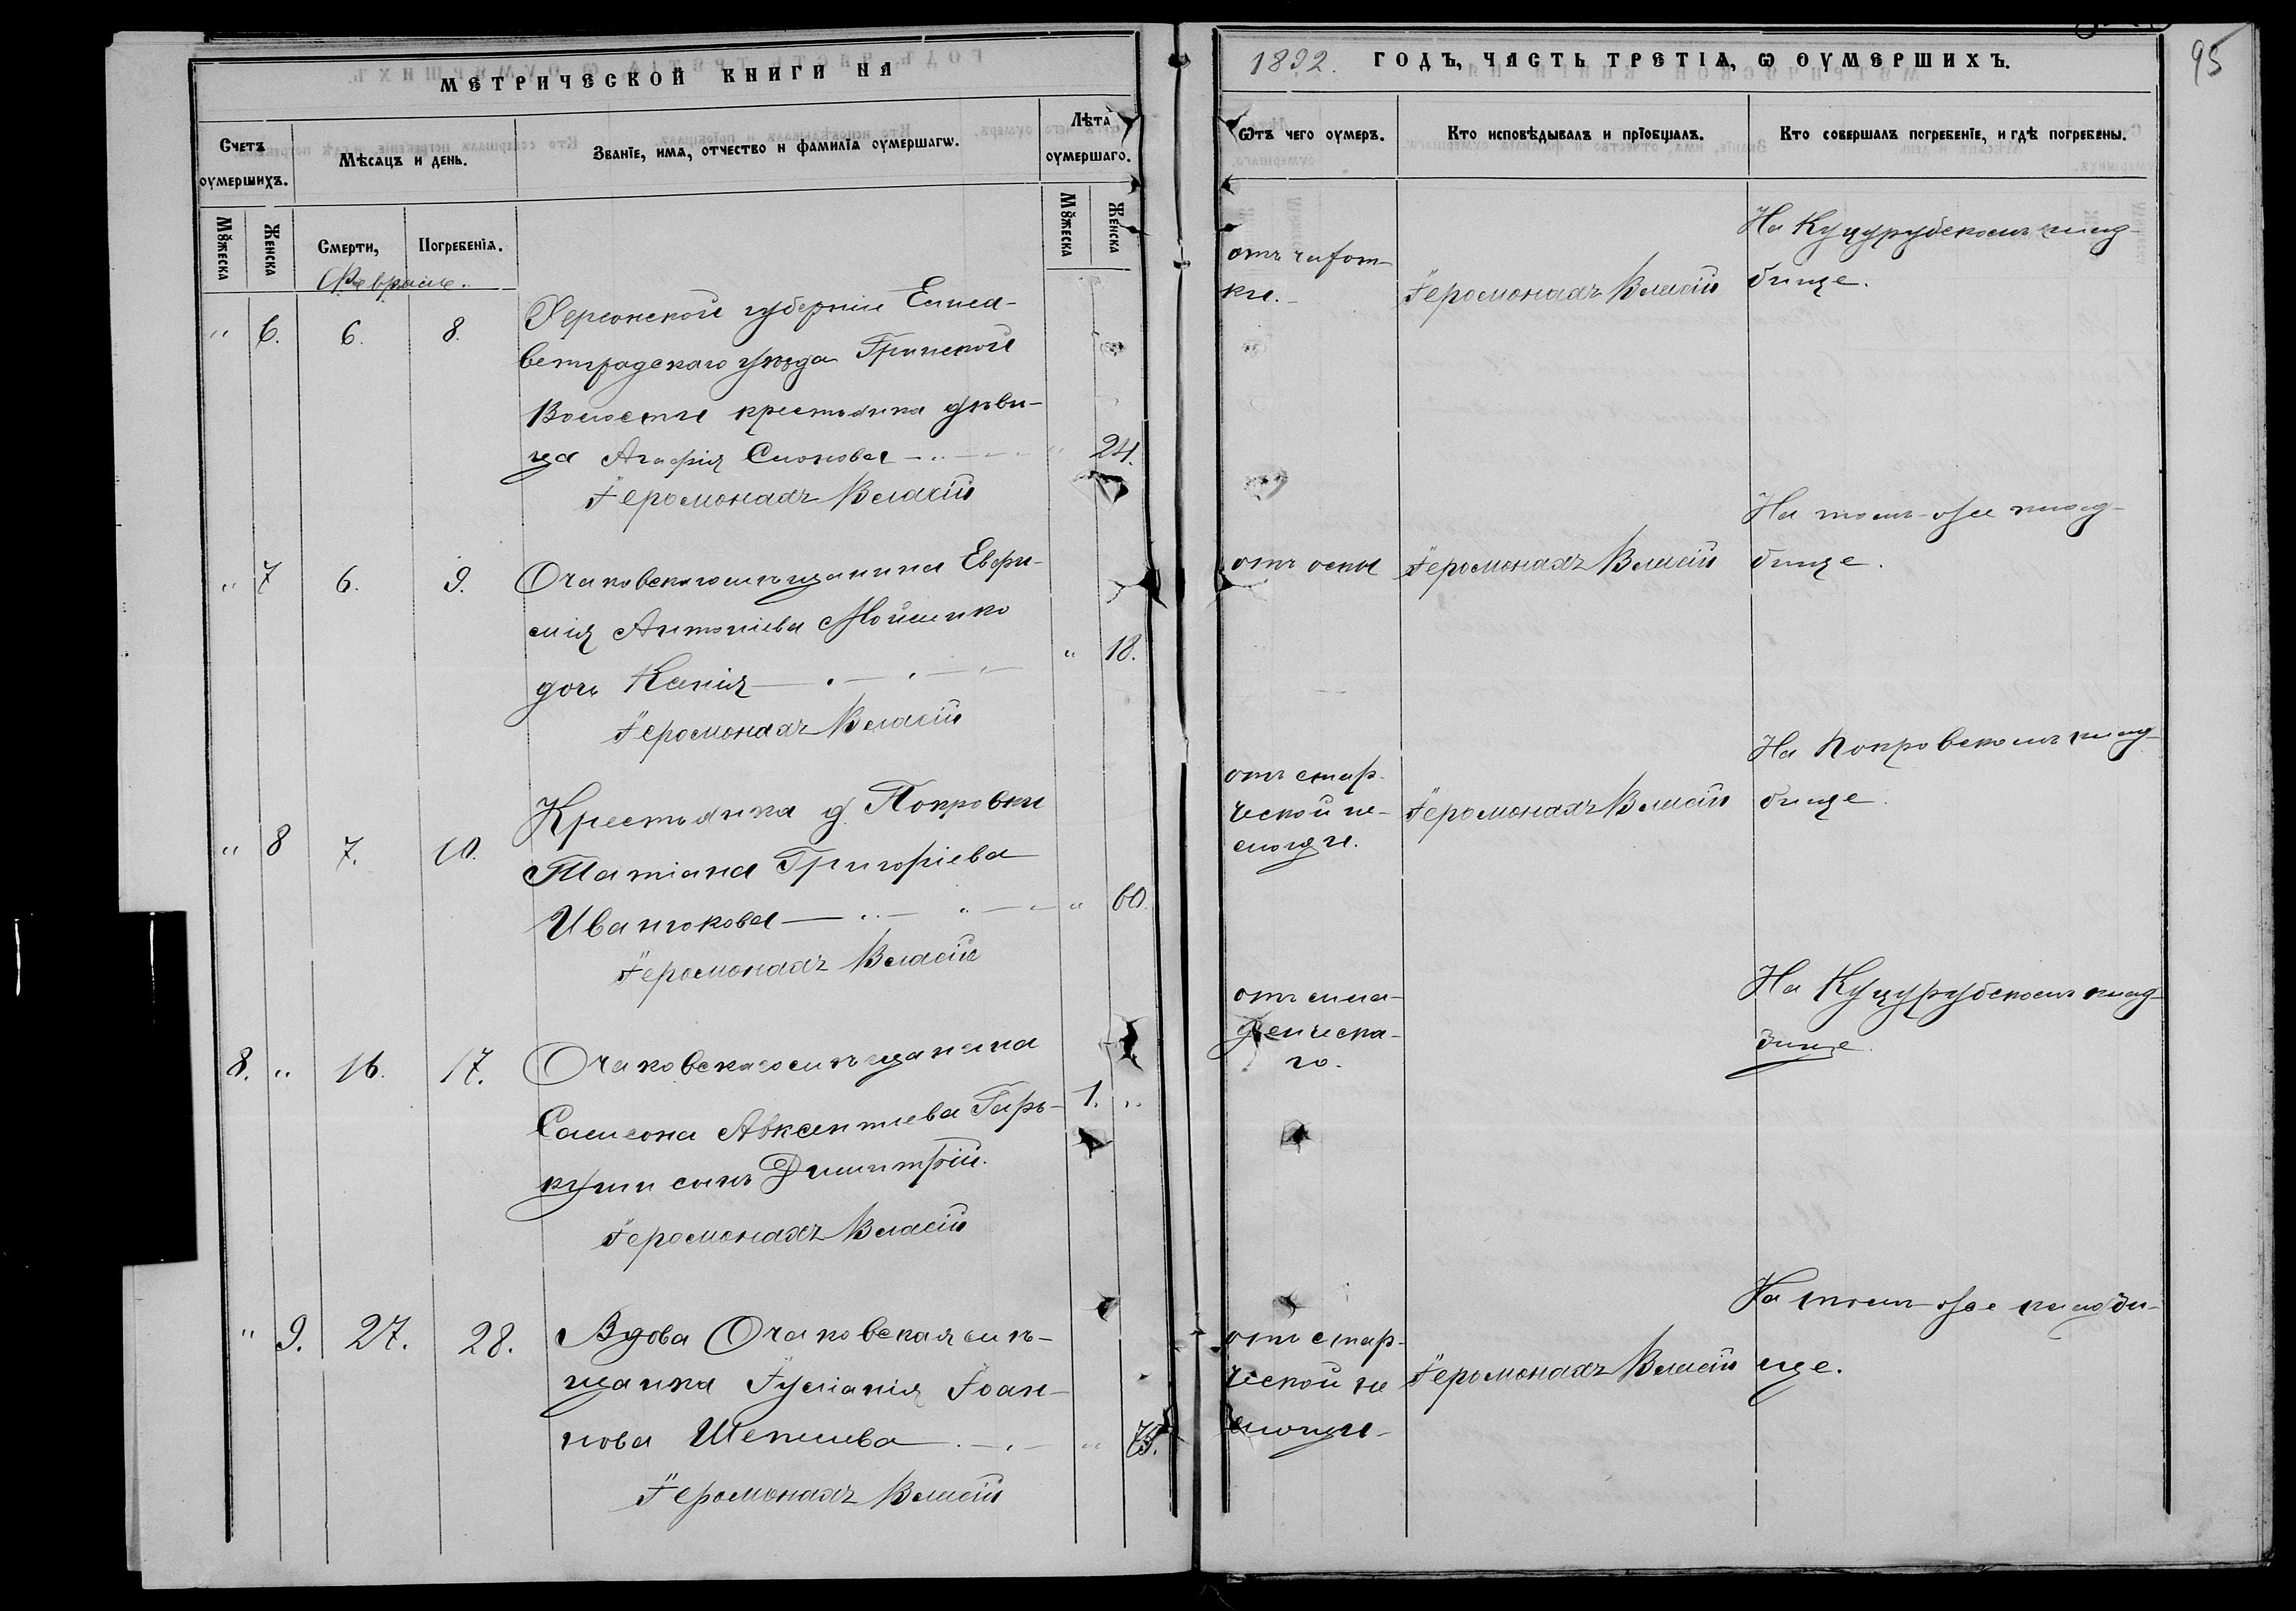 МЕТРИЧЕСКОЙ КНИГИ НА
1892. ГОДЪ, ЧАСТЬ ТРЕТІѦ, Ѡ ОУМЕРШИХЪ.
95
Счетъ оумершихъ.
Мѣсяцъ и день.
Званїе, имѧ, отчество и фамилїѧ оумершагѡ.
Лѣта оумершаго.
Ѿтъ чего оумеръ.
Кто исповѣдывалъ и прїобщалъ.
Кто совершалъ погребенїе, и гдѣ погребены.
Мꙋжеска
Женска
Смерти,
Погребенїѧ.
Мꙋжеска
Женска
Февраль.
" 6. 6. 8.
Херсонской губерніи Елиса-
ветградскаго уѣзда
Волости крестьянка дѣви-
ца Агафія " 24.
Іеромонахъ Власій
отъ чахот-
ки.
Іеромонахъ Власій
На Куцурубскомъ клад-
бище.
" 7 6. 9.
Очаковскаго мѣщанина Евфи-
мія Антоніева Мойсеико
дочь Ксенія " 18.
Іеромонахъ Власій
отъ оспы
Іеромонахъ Власій
На томъ-же клад-
бище.
" 8 7. 10.
Крестьянка д. Покровки
Татіана Григоріева
Иванюкова " 60.
Іеромонахъ Власій
отъ стар-
ческой не-
мощи.
Іеромонахъ Власій
На Покровскомъ клад-
бище
8. " 16. 17.
Очаковскаго мѣщанина
Самсона Авксентіева Гарь-
куши сынъ Димитрій. 1. "
Іеромонахъ Власій
отъ мла-
денческа-
го.
На Куцурубскомъ клад-
бище.
" 9. 27. 28.
Вдова Очаковская мѣ-
щанка Іуліанія Іоан-
нова " 75.
Іеромонахъ Власій
отъ стар-
ческой не
мощи
Іеромонахъ Власій
На томъ-же кладби-
ще.